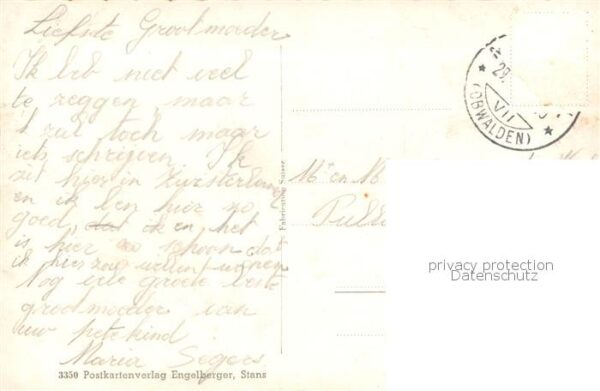 Liefste Grootmoeder
Ik heb niet veel
te zeggen, maar
'k zal toch maar
iets schrijven. Ik
zit hier in
en ik ben hier zo
goed, dat ik en het
is hier zo schoon dat
ik hier zou willen wonen
Nog vele groeten beste
grootmoeder van
uw petekind
Maria Segers
3350 Postkartenverlag Engelberger, Stans
Fabrication Suisse
29.
VII
(OBWALDEN)
en
privacy protection
Datenschutz